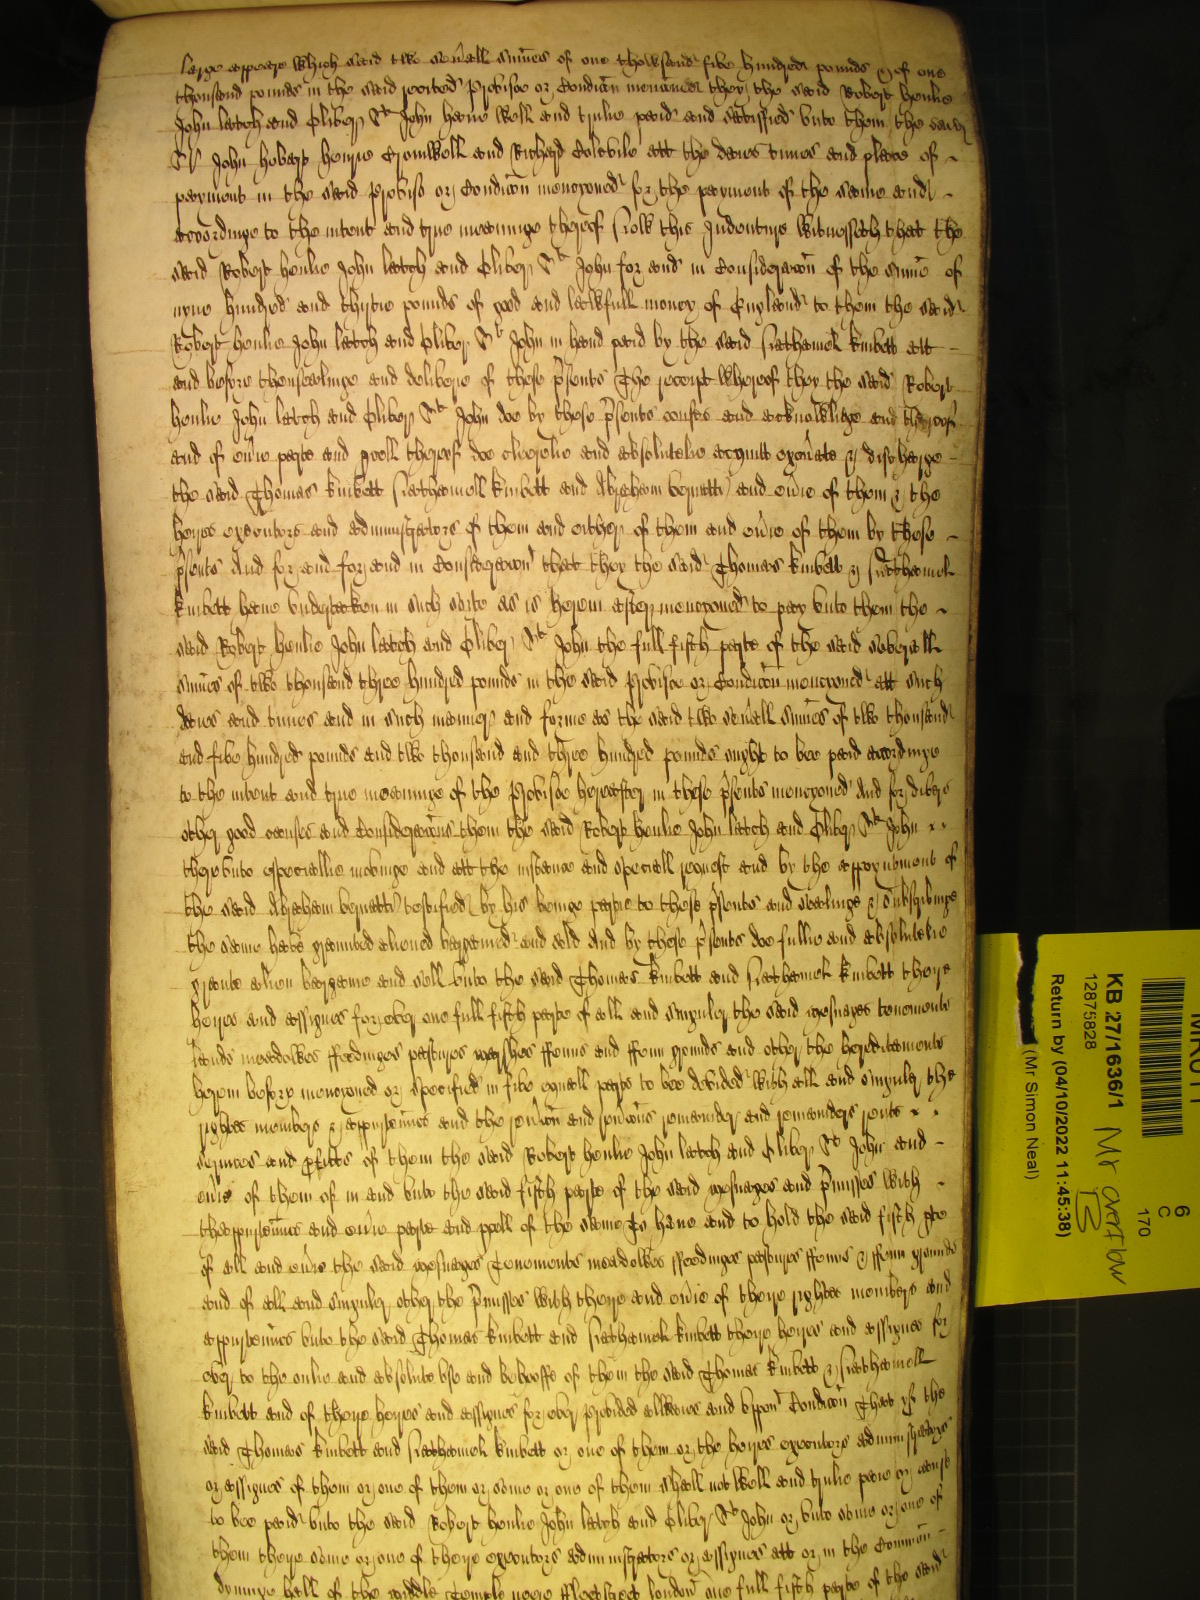 large appeare Which said two sev̄all som̄es of one thowsand five hundred pounds & of one
thousand pounds in the said recited Provisoe or Condic̄on menc̄oned they the said Robert Henlie
John Latch and Oliver St John have well and trulie paid and satisfied vnto them the said
Sr John Hobart Henrie Cromwell and Richard Colevile att the daies times and place of
payment in the said Proviso or Condic̄on menc̄oned for the payment of the same and
accordinge to the intent and true meaninge thereof Now this Indenture Witnesseth that the
said Robert Henlie John Latch and Oliver St John for and in Considerac̄on of the som̄e of
nyne hundred and thirtie pounds of good and lawfull money of England to them the said
Robert Henlie John Latch and Oliver St John in hand paid by the said Nathaniel Knivett att
and before thensealinge and deliverie of these p̄sents The receipt whereof they the said Robert
Henlie John Latch and Oliver St John doe by these p̄sents confes and acknowledge and thereof
and of ev̄ie parte and p̄cell thereof doe cleerelie and absolutelie acquitt exon̄ate & discharge
the said Thomas Knivett Nathaniell Knivett and Abraham and ev̄ie of them & the
heires executors and administrators of them and either of them and ev̄ie of them by these
p̄sents And for and for and in Considerac̄on that they the said Thomas Knivett & Nathaniel
Knivett have vndertaken in such sorte as is herein after menc̄oned to pay vnto them the
said Robert Henlie John Latch and Oliver St John the full fifth parte of the said severall
som̄es of two thousand three hundred pounds in the said Provisoe or Condic̄on menc̄oned att such
daies and times and in such manner and forme as the said two sev̄all som̄es of two thousand
and five hundred pounds and two thousand and three hundred pounds ought to bee paid accordinge
to the intent and true meaninge of the Provisoe hereafter in these p̄sents menc̄oned And for divers
other good causes and Considerac̄ons them the said Robert Henlie John Latch and Oliver St John
therevnto especiallie movinge and att the instance and speciall request and by the appoyntment of
the said Abraham testified by his beinge partie to these p̄sents and sealinge & subscribinge
the same have graunted aliened bargained and sold And by these p̄sents doe fullie and absolutelie
graunte alien bargaine and sell vnto the said Thomas Knivett and Nathaniel Knivett their
heires and assignes for ever one full fifth parte of all and singuler the said mesuages tenements
lands meadowes ffeedinges pastures marshes ffenns and ffenn grounds and other the hereditaments
herein before menc̄oned or specified in five equall parts to bee devided With all and singuler the
rightes members & appurten̄nces and the rev̄c̄on and rev̄c̄ons remainder and remainders rents
services and p̄fitts of them the said Robert Henlie John Latch and Oliver St John and
ev̄ie of them of in and vnto the said fifth parte of the said mesuages and p̄misses With
thappurten̄nces and ev̄ie parte and p̄cell of the same To have and to hold the said fifth p̄te
of all and ev̄ie the said mesuages Tenements meadowes ffeedinges pastures ffenns & ffenn grounds
and of all and singuler other the p̄misses With their and ev̄ie of their rightes members and
appurten̄nces vnto the said Thomas Knivett and Nathaniel Knivett their heires and assignes for
ever to the onlie and absolute vse and behooffe of them the said Thomas Knivett & Nathaniell
Knivett and of their heires and assignes for ever Provided allwaies and vppon Condic̄on That if the
said Thomas Knivett and Nathaniel Knivett or one of them or the heires executors administrators
or assignes of them or one of them or some or one of them shall not well and trulie paie or cause
to bee paid vnto the said Robert Henlie John Latch and Oliver St John or vnto some or one of
them their some or one of their executors administrators or assignes att or in the Common
dyninge hall of the middle Temple neere ffleetstreet London one full fifth parte of the said
KB 27/1636/1 Mr overflow
12875828
Return by (04/10/2022 11:45:38)
(Mr Simon Neal)
6
C
170